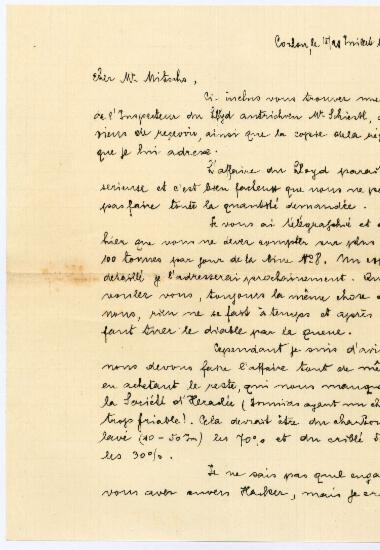 Cozlou, le 15/28 Juillet
Cher Mr. Mitzchs,
Ci-inclus vous trouver une
de l'Inspecteur du Lloyd autrichien Mr. Schiestl,
viens de recevoir, ainsi que la copie de la
que je lui adresse.
L'affaire du Lloyd parait
serieuse et c'est bien facheux que nous ne
pas faire toute la quantité demandée.
Je vous ai télégraphié et
hier que vous ne devez compter sur plus
100 tonnes par jour de la Mine No 8. Un
detaillé je l'adresserai prochainement. Que
voulez vous, toujours la même chose
nous, rien ne se fait à temps et après
faut tirer le diable par la queue.
Cependant je suis d'avis
nous devons faire l'affaire tout de même
en achetant le reste, qui nous manque
la Société d'Heraclée (Tsouridas ayant un
trop friable). Cela devait être du charbon
lavé (10-50m) les 70% et du criblé
les 30%.
Je ne sais pas quel
vous avez envers Hacker, mais je